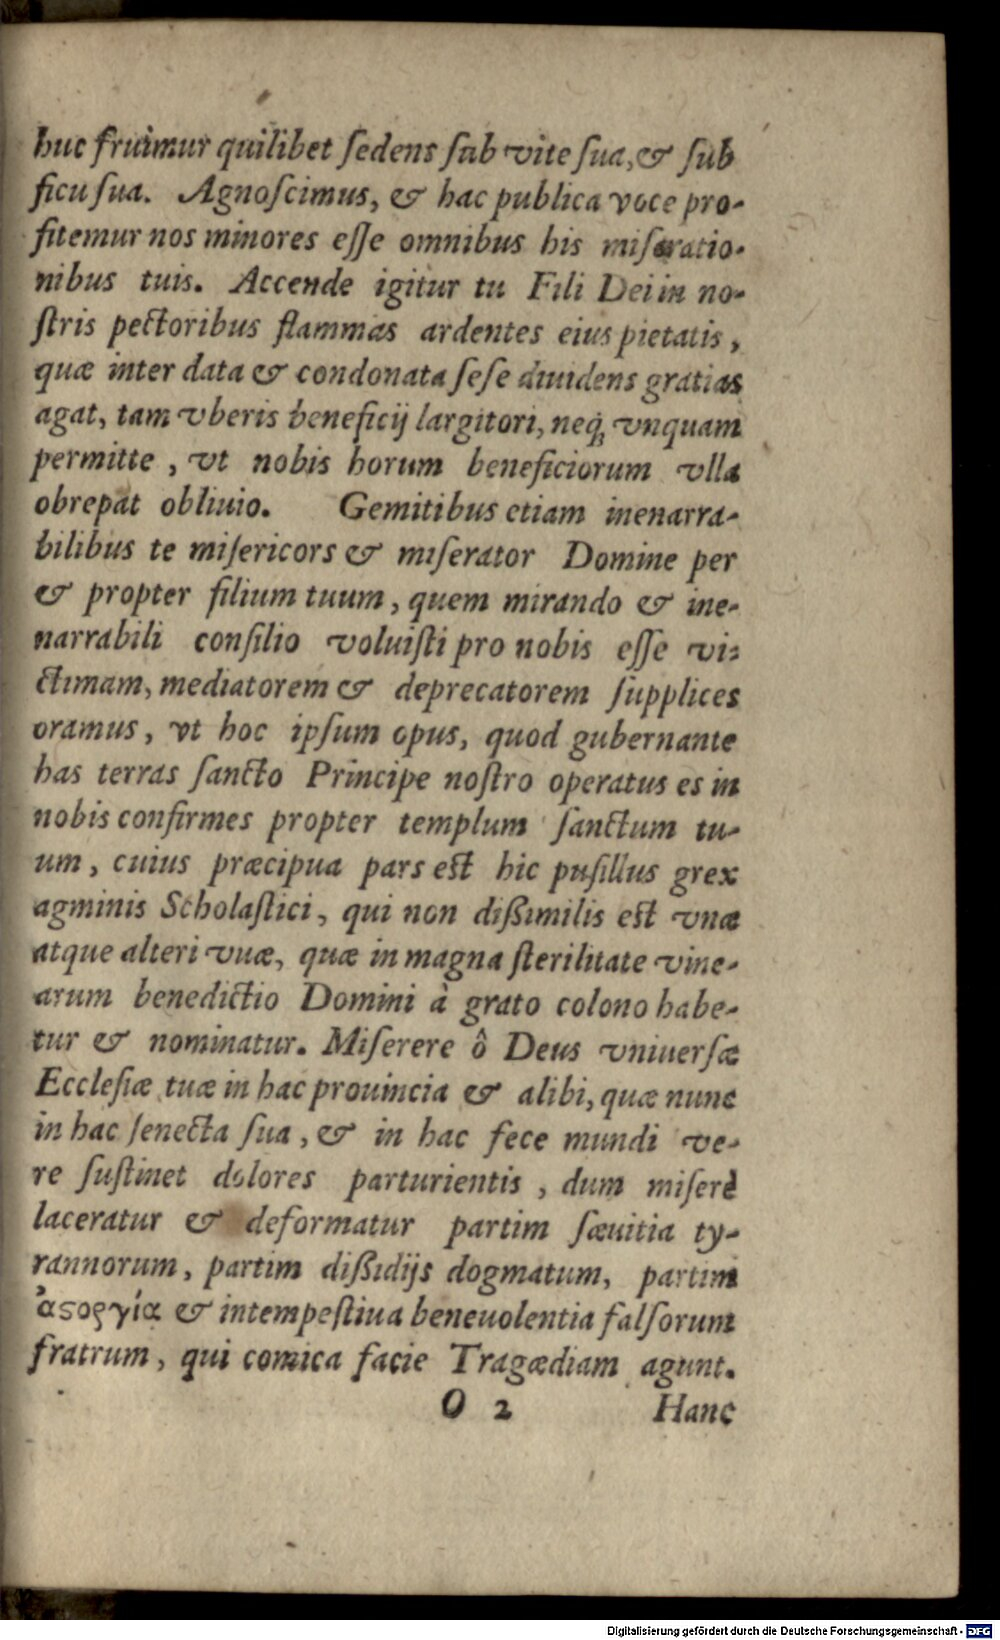 huc fruimur quilibet ſedens ſub vite ſua, & ſub
ficu ſua. Agnoſcimus, & hac publica voce pro-
fitemur nos minores eſſe omnibus his miſeratio-
nibus tuis. Accende igitur tu Fili Dei in no-
ſtris pectoribus flammas ardentes eius pietatis,
quæ inter data & condonata ſeſe diuidens gratias
agat, tam vberis beneficij largitori, neq́; vnquam
permitte, vt nobis horum beneficiorum vlla
obrepat obliuio. Gemitibus etiam inenarra-
bilibus te miſericors & miſerator Domine per
& propter filium tuum, quem mirando & ine-
narrabili conſilio voluiſti pro nobis eſſe vi-
ctimam, mediatorem & deprecatorem ſupplices
oramus, vt hoc ipſum opus, quod gubernante
has terras ſancto Principe noſtro operatus es in
nobis confirmes propter templum ſanctum tu-
um, cuius præcipua pars eſt hic puſillus grex
agminis Scholaſtici, qui non dißimilis eſt vnæ
atque alteri vuæ, quæ in magna ſterilitate vine-
arum benedictio Domini à grato colono habe-
tur & nominatur. Miſerere ô Deus vniuerſæ
Eccleſiæ tuæ in hac prouincia & alibi, quæ nunc
in hac ſenecta ſua, & in hac fece mundi ve-
re ſuſtinet dolores parturientis, dum miſerè
laceratur & deformatur partim ſæuitia ty-
rannorum, partim dißidijs dogmatum, partim
ἀϛοργία & intempeſtiua beneuolentia falſorum
fratrum, qui comica facie Tragædiam agunt.
O 2 Hanc
Digitalisierung gefördert durch die Deutsche Forschungsgemeinschaft - DFG